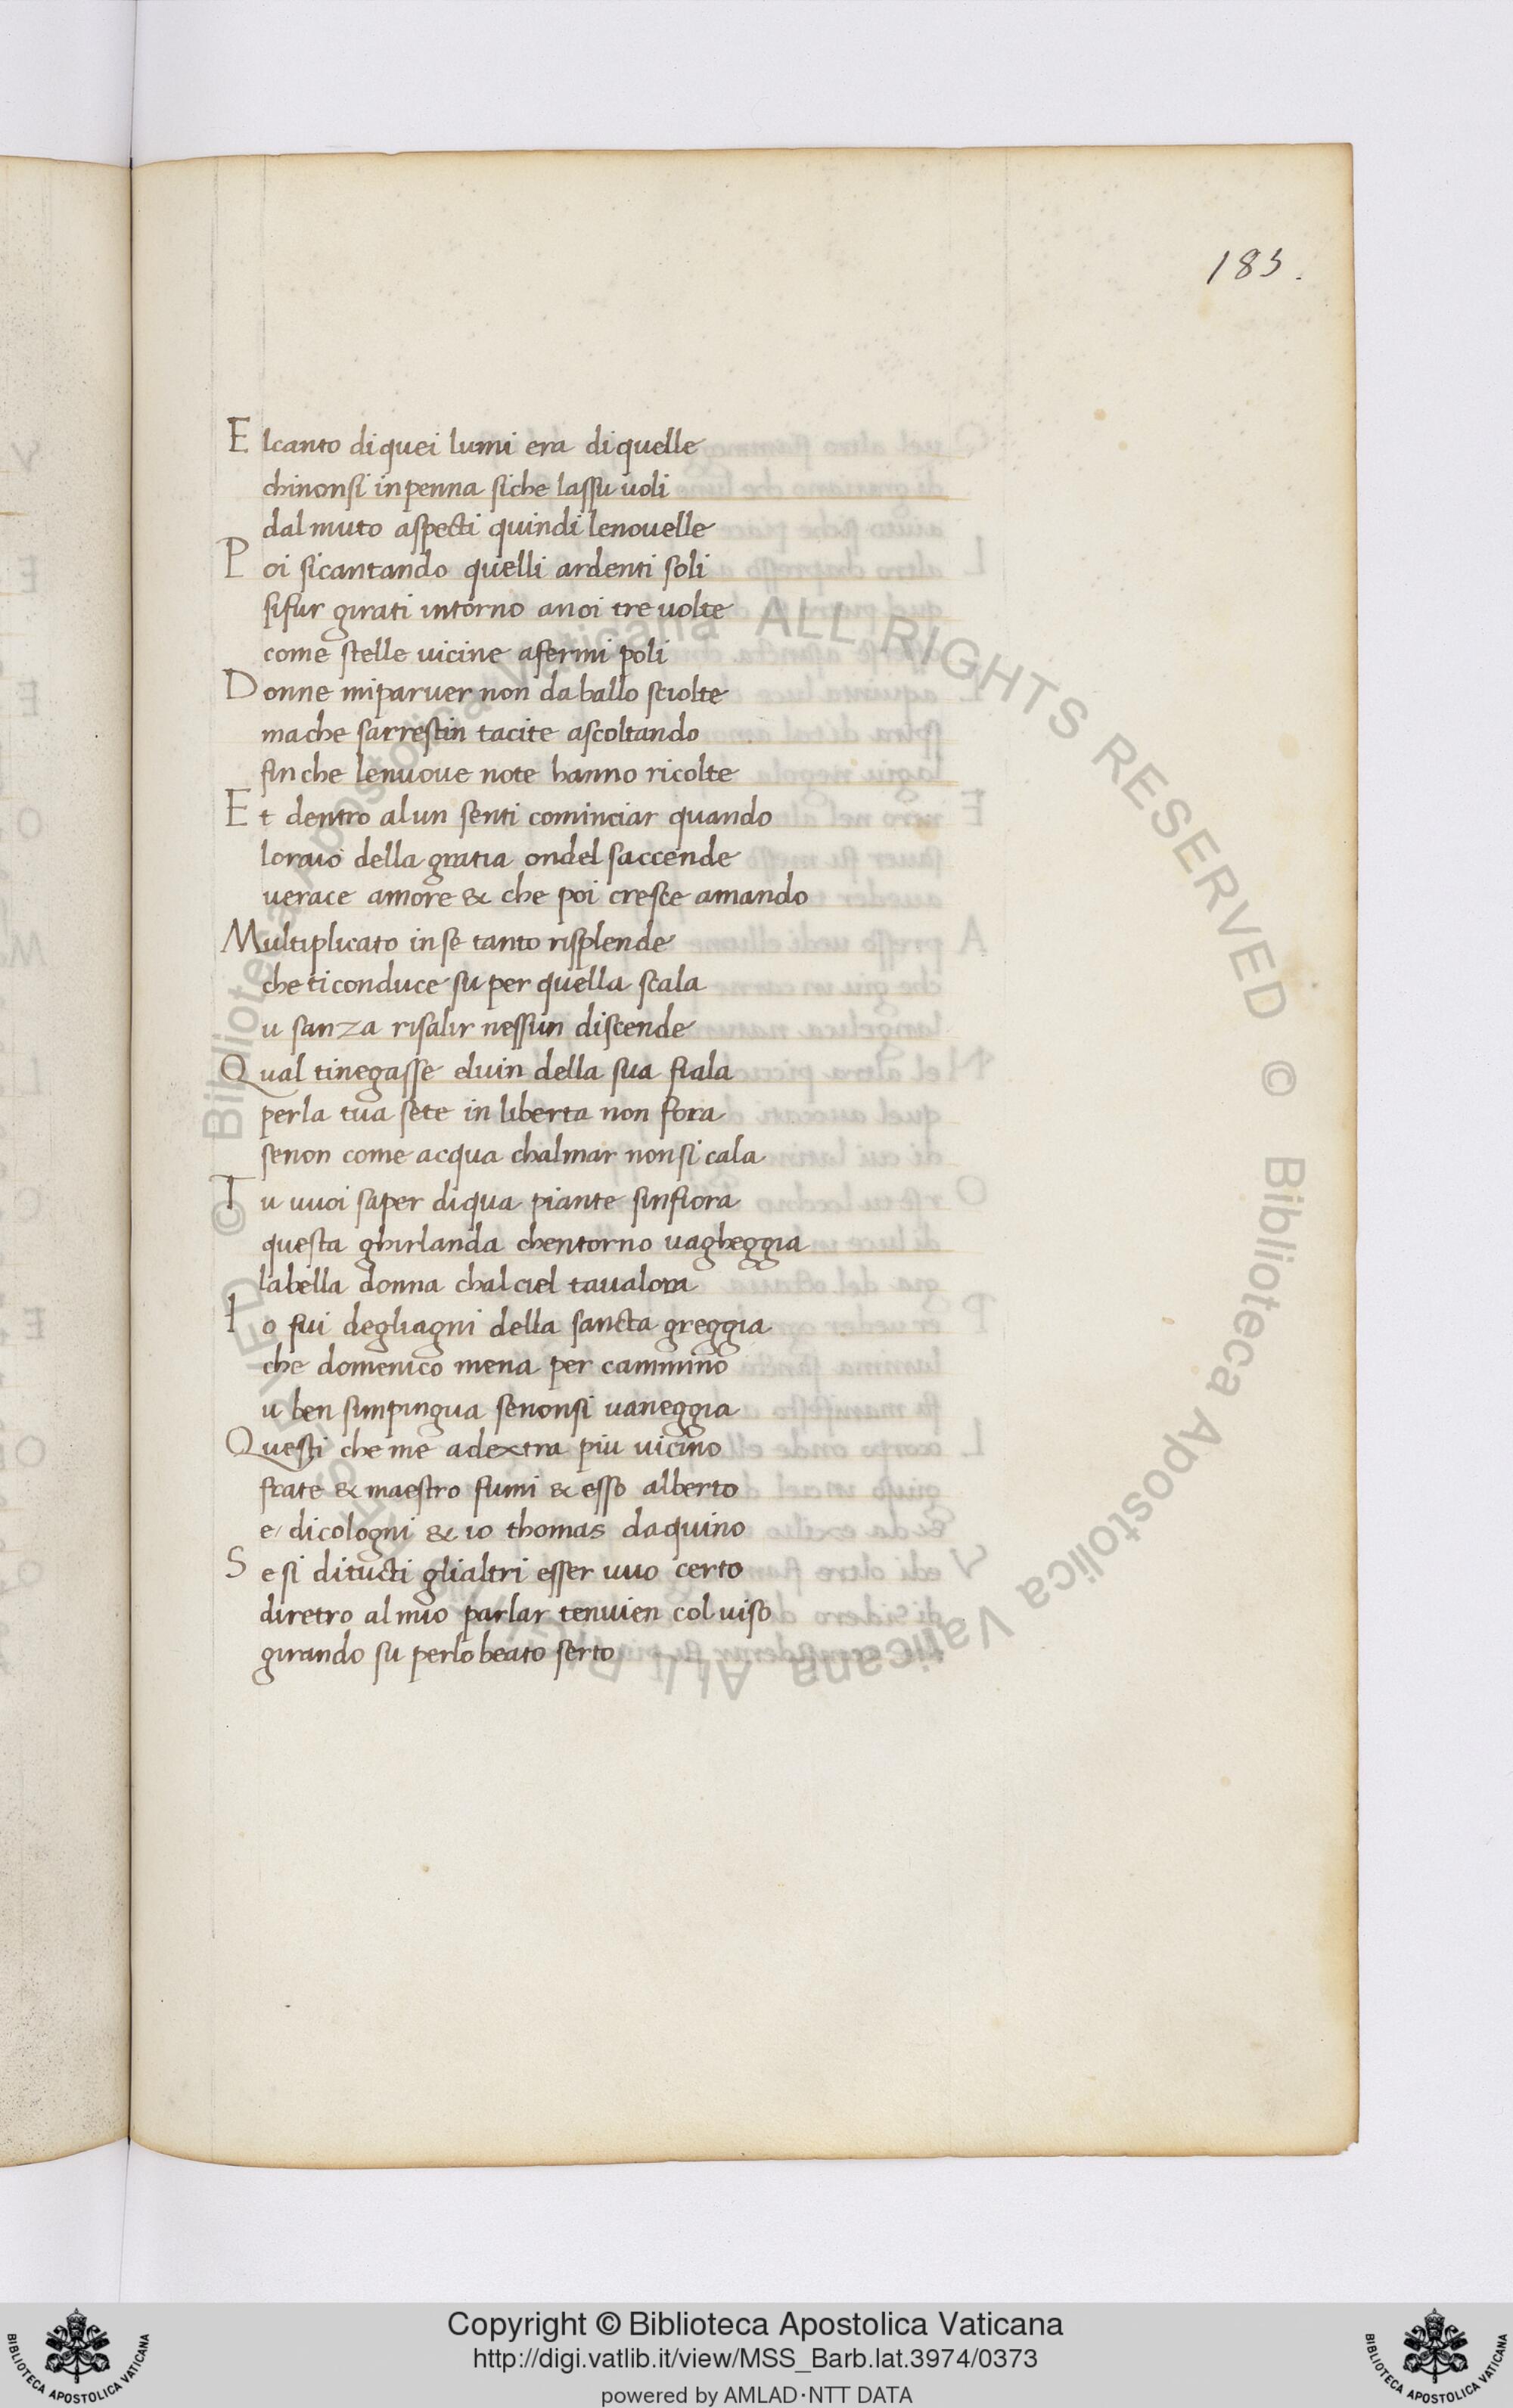 183.
Elcanto diquei lumi era diquelle
chinonsi inpenna siche lassu uoli
dal muto aspecti quindi lenouelle
Poi sicantando quelli ardenti soli
sifur girati intorno anoi tre uolte
come stelle uicine afermi poli
Donne miparuer non da ballo sciolte
ma che sarrestin tacite ascoltando
fin che lenuoue note hanno ricolte
Et dentro alun senti cominciar quando
loraio della gratia ondel saccende
uerace amore & che poi cresce amando
Multiplicato inse tanto risplende
che ticonduce su per quella scala
u sanza risalir nessun discende
Qual tinegasse eluin della sua fiala
perla tua sete in liberta non fora
senon come acqua chalmar nonsi cala
Tu uuoi saper diqua piante sinfiora
questa ghirlanda chentorno uagheggia
labella donna chalciel taualora
Io fui degliagni della sancta greggia
che domenico mena per cammino
u ben simpingua senonsi uaneggia
Questi che me adextra piu uicino
frate & maestro fumi & esso alberto
e dicologni & io thomas daquino
Se si ditucti glialtri esser uuo certo
diretro al mio parlar tenuien col uiso
girando su perlo beato serto
© Biblioteca Apostolica Vaticana ALL RIGHTS RESERVED © Biblioteca Apostolica Vaticana ALL RIGHTS RESERVED
Copyright © Biblioteca Apostolica Vaticana
http://digi.vatlib.it/view/MSS_Barb.lat.3974/0373
powered by AMLAD·NTT DATA
BIBLIOTECA APOSTOLICA VATICANA
BIBLIOTECA APOSTOLICA VATICANA